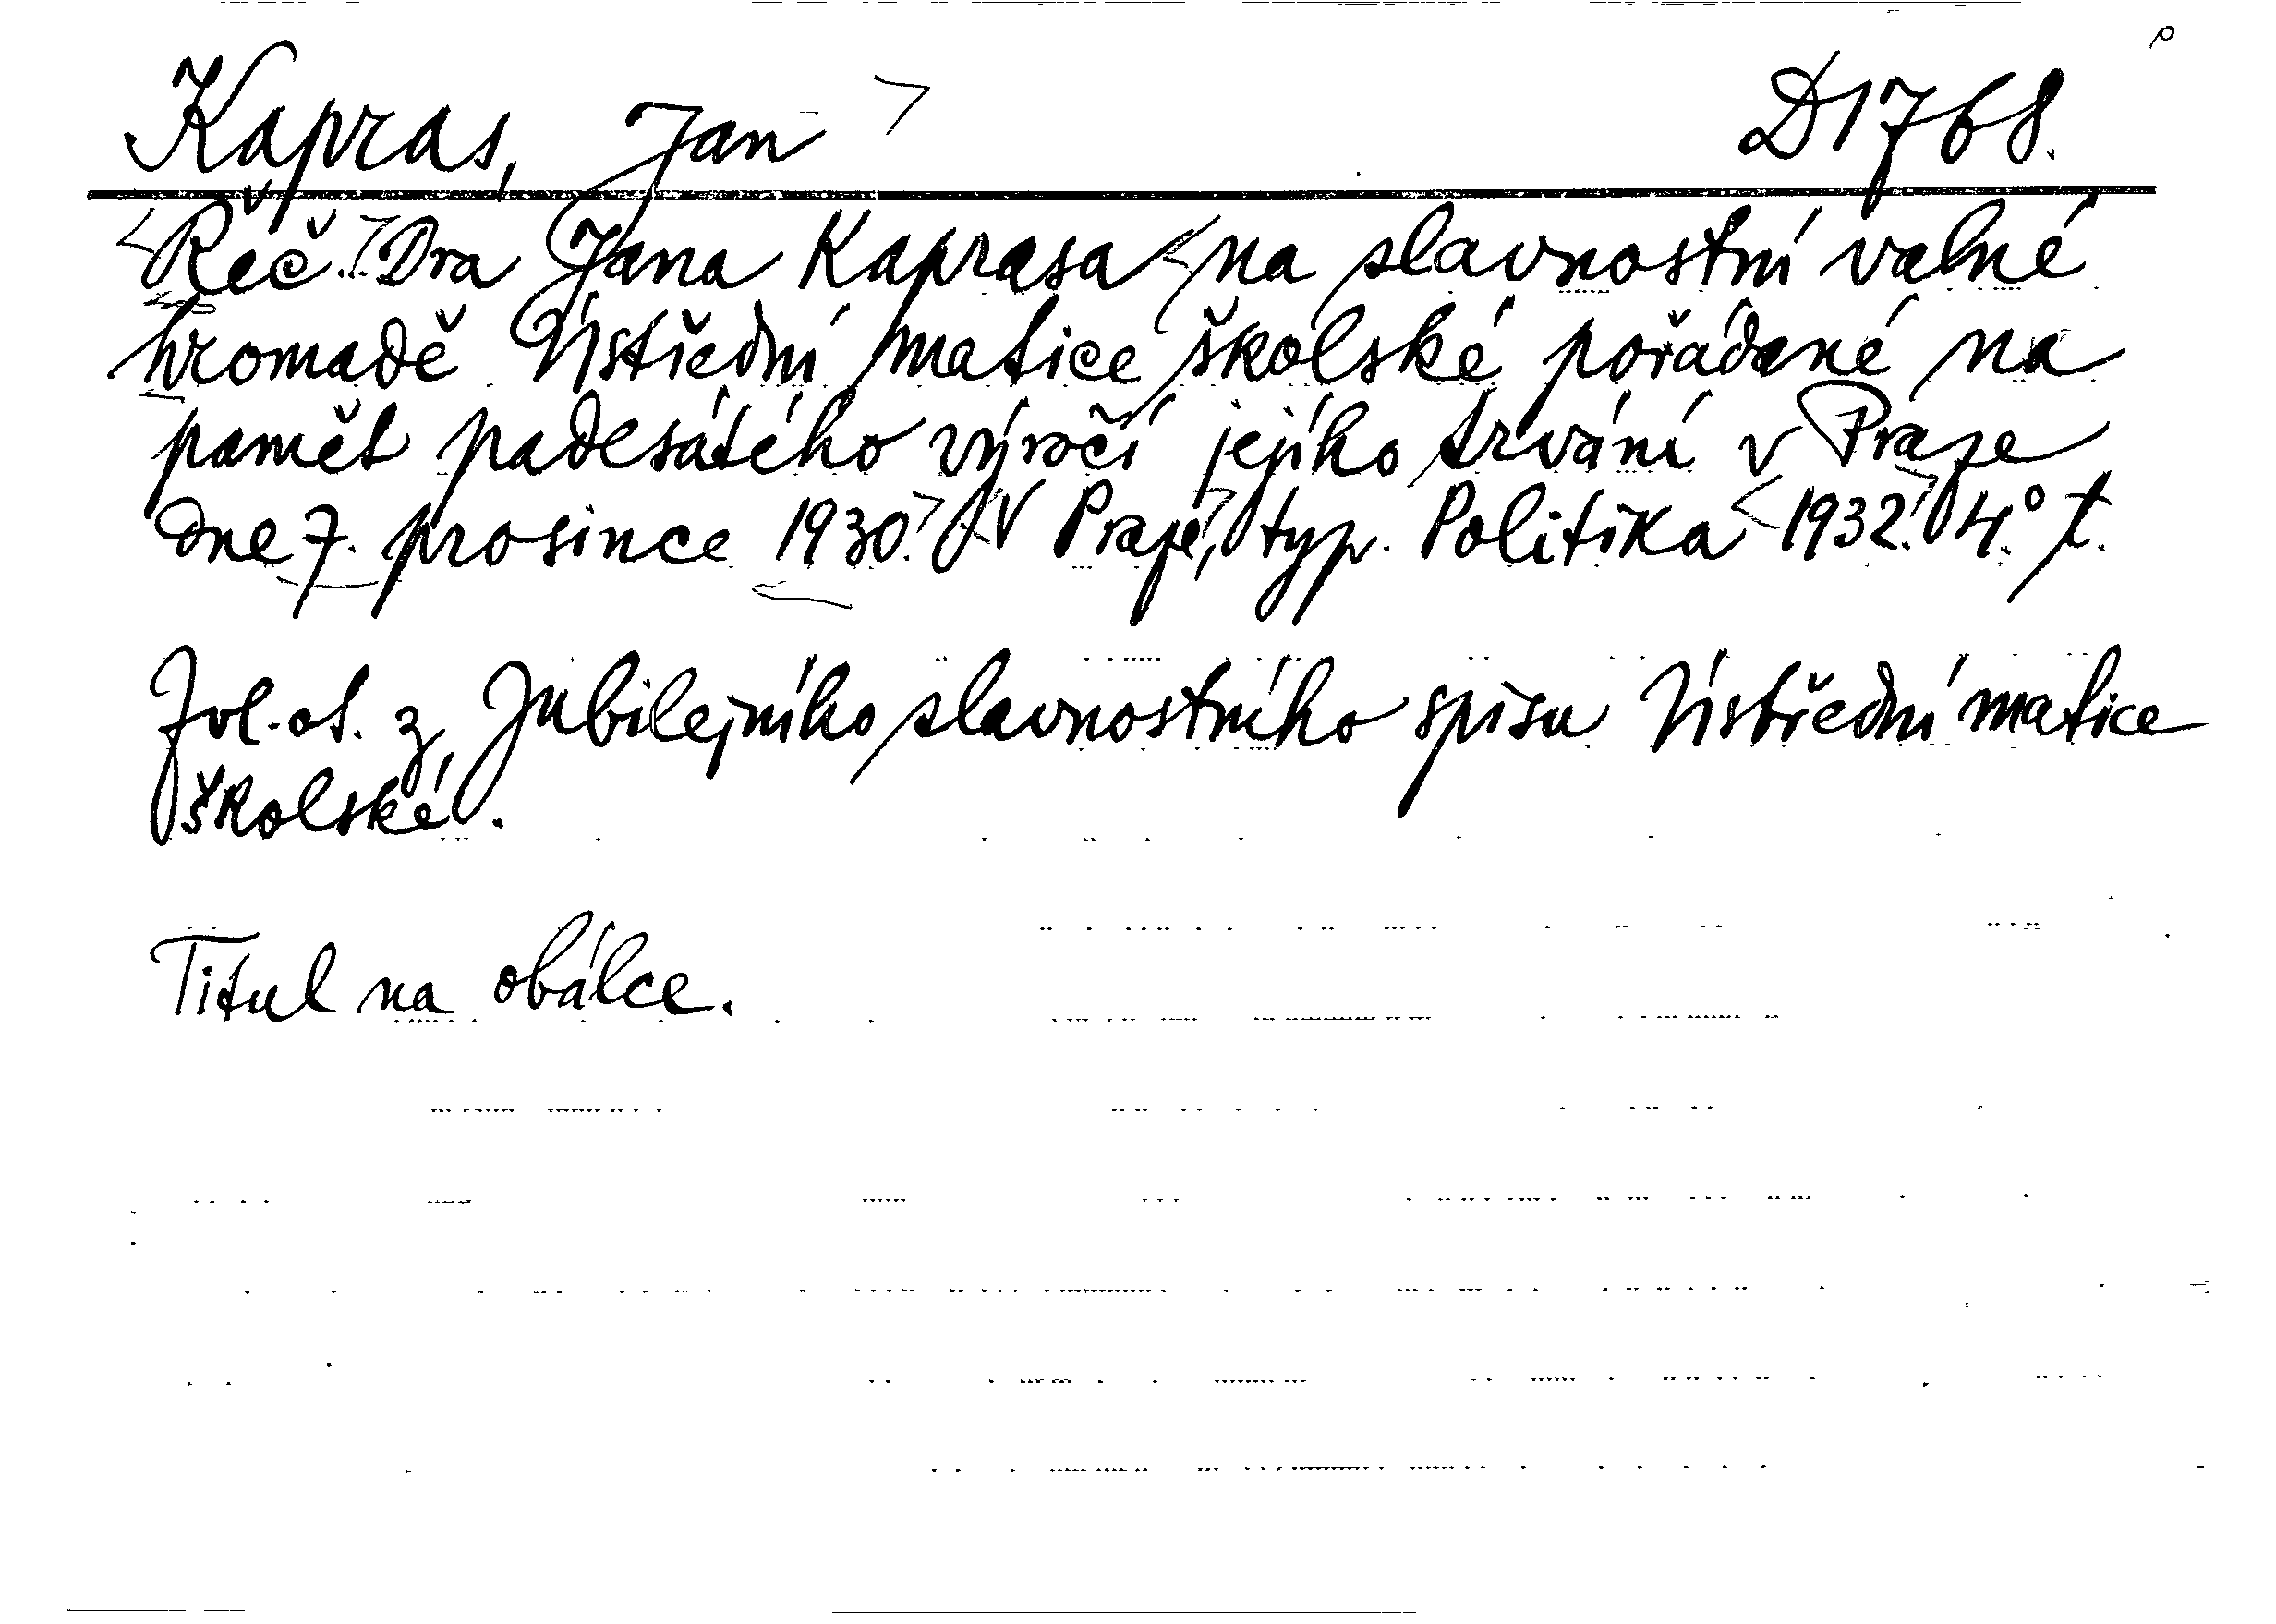 Kapras, Jan D1768.
Řeč Dra Jana Kaprasa na slavnostní valné
hromadě Ústřední matice školské pořádané na
paměť padesátého výročí jejího trvání v Praze
dne 7. prosince 1930. V Praze, typ. Politika 1932. 4.° t.
Zvl. ot. z Jubilejního slavnostního spisu Ústřední matice
školské.
Titul na obálce.